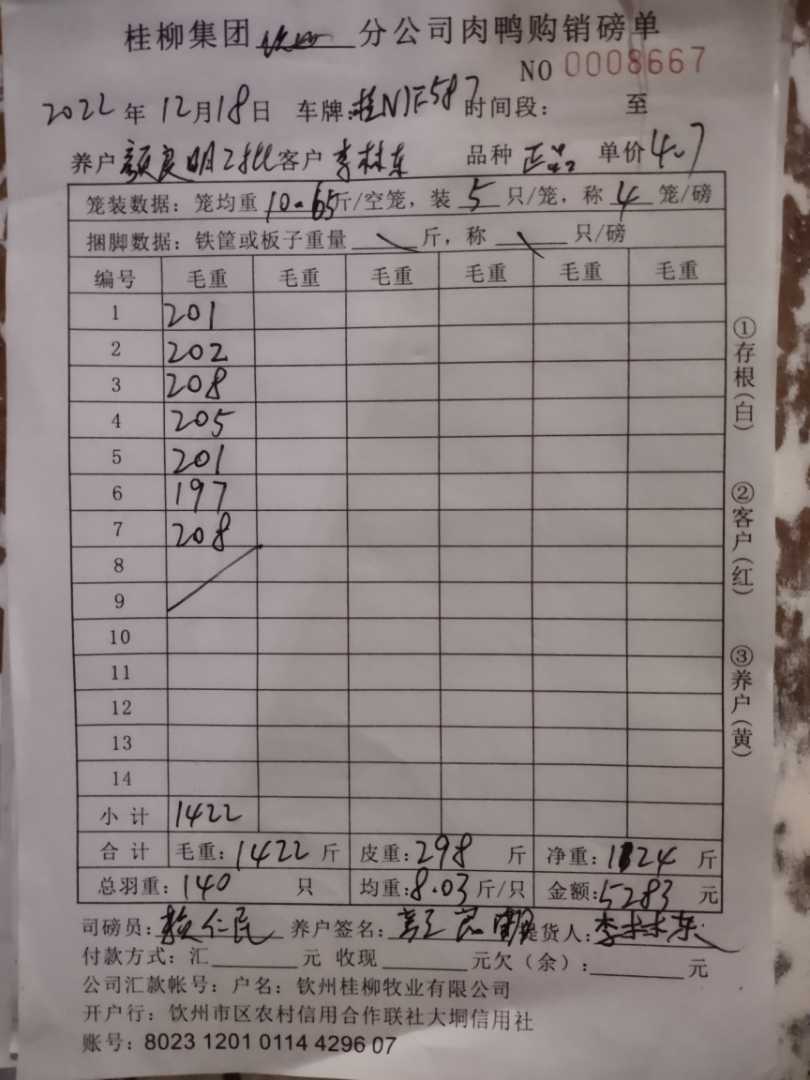 桂柳集团 钦州 分公司肉鸭购销磅单
NO 0008667
2022 年 12月18日 车牌:桂NF587 时间段: 至
养户 颜良明2批 客户 李林东 品种 正品 单价 4.7
笼装数据: 笼均重 10.65斤/空笼, 装 5 只/笼, 称 4 笼/磅
捆脚数据: 铁筐或板子重量 \ 斤, 称 \ 只/磅
编号 毛重 毛重 毛重 毛重 毛重 毛重
1 201
2 202
3 208
4 205
5 201
6 197
7 208
8
9
10
11
12
13
14
小计 1422
合计 毛重: 1422 斤 皮重: 298 斤 净重: 1124 斤
总羽重: 140 只 均重: 8.03 斤/只 金额: 5283 元
司磅员: 仁民 养户签名: 颜良明 提货人: 李林东
付款方式: 汇 元 收现 元欠(余): 元
公司汇款帐号: 户名: 钦州桂柳牧业有限公司
开户行: 钦州市区农村信用合作联社大垌信用社
账号: 8023 1201 0114 4296 07
①存根(白)
②客户(红)
③养户(黄)